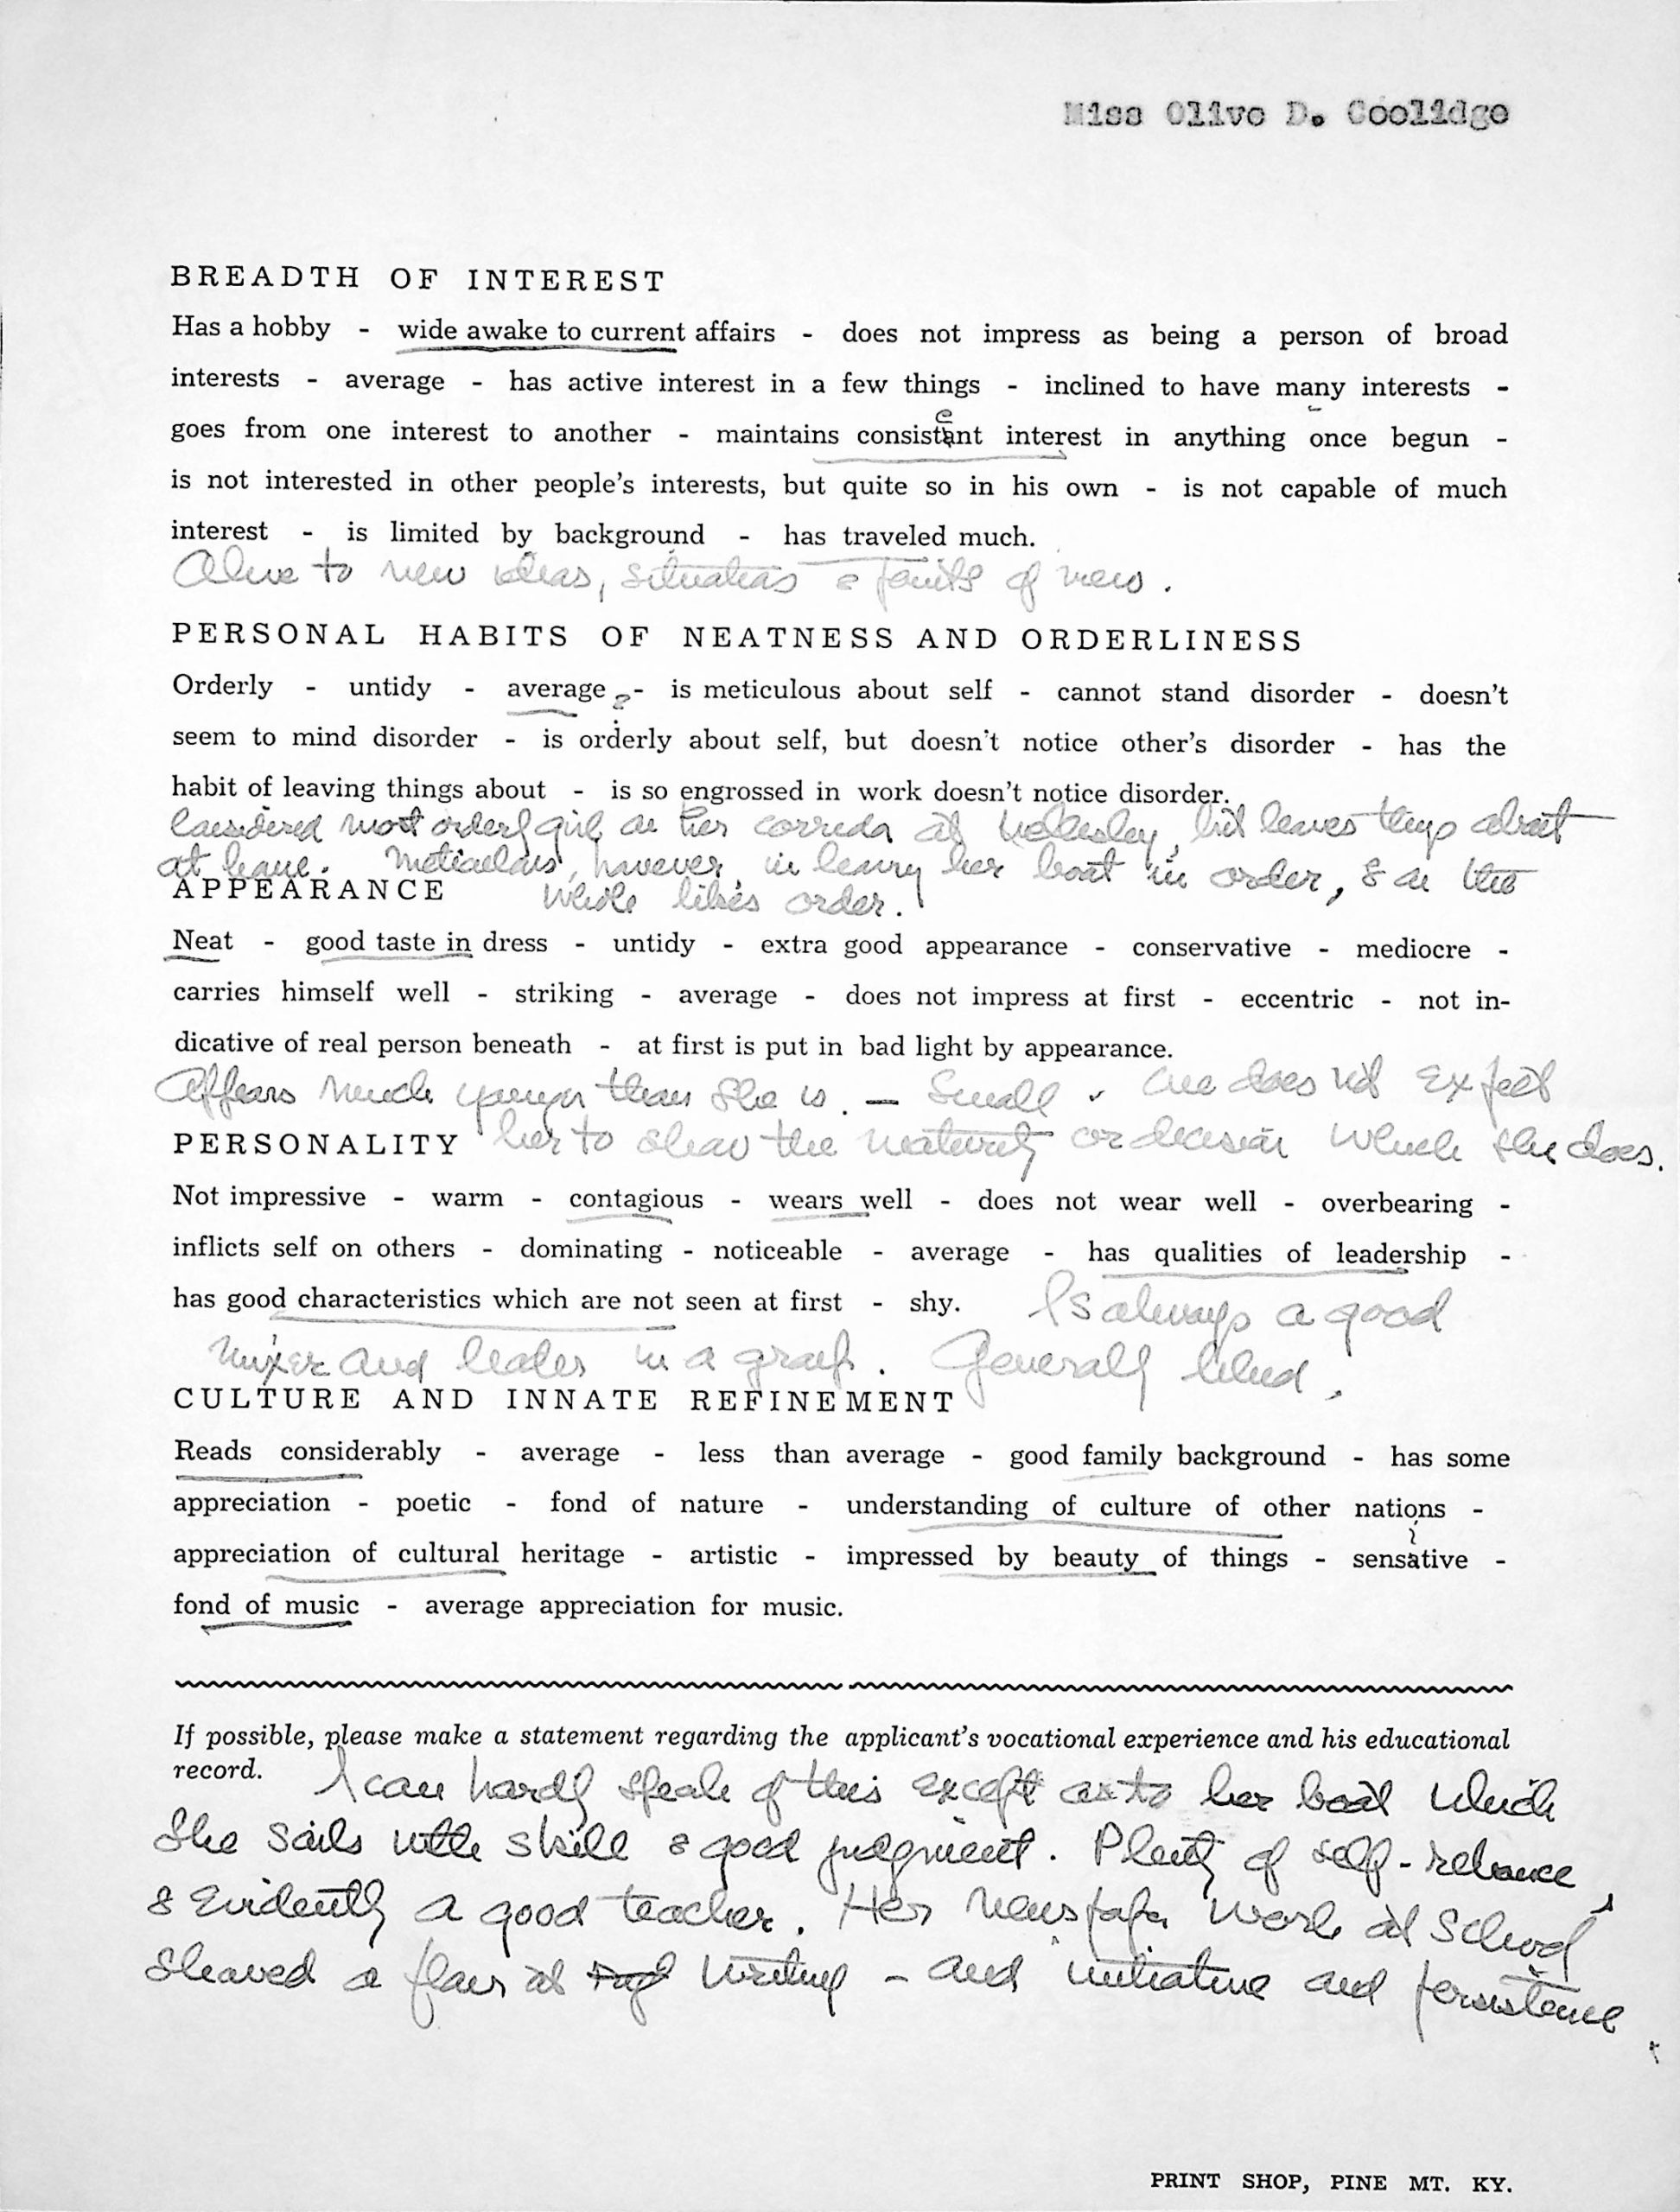 Miss Olive D. Coolidge
BREADTH OF INTEREST
Has a hobby - wide awake to current affairs - does not impress as being a person of broad
interests - average - has active interest in a few things - inclined to have many interests -
e
goes from one interest to another - maintains consistant interest in anything once begun -
is not interested in other people's interests, but quite so in his own - is not capable of much
interest - is limited by background - has traveled much.
Alive to new ideas, situations & points of view.
PERSONAL HABITS OF NEATNESS AND ORDERLINESS
Orderly - untidy - average ? - is meticulous about self - cannot stand disorder - doesn't
seem to mind disorder - is orderly about self, but doesn't notice other's disorder - has the
habit of leaving things about - is so engrossed in work doesn't notice disorder.
Considered most orderly girl on her corridor at Wellesley, but leaves things about
at home. Meticulous, however, in leaving her boat in order, & on the
APPEARANCE whole likes order.
Neat - good taste in dress - untidy - extra good appearance - conservative - mediocre -
carries himself well - striking - average - does not impress at first - eccentric - not in-
dicative of real person beneath - at first is put in bad light by appearance.
Appears much younger than she is. - Small. One does not expect
PERSONALITY her to show the maturity or decision which she does.
Not impressive - warm - contagious - wears well - does not wear well - overbearing -
inflicts self on others - dominating - noticeable - average - has qualities of leadership -
has good characteristics which are not seen at first - shy. Is always a good
mixer and leader in a group. Generally liked.
CULTURE AND INNATE REFINEMENT
Reads considerably - average - less than average - good family background - has some
appreciation - poetic - fond of nature - understanding of culture of other nations -
i
appreciation of cultural heritage - artistic - impressed by beauty of things - sensative -
fond of music - average appreciation for music.
If possible, please make a statement regarding the applicant's vocational experience and his educational
record. I can hardly speak of this except as to her boat which
she sails with skill & good judgment. Plenty of self-reliance,
& evidently a good teacher. Her newspaper work at School
showed a flair at writing - and initiative and persistence.
PRINT SHOP, PINE MT. KY.